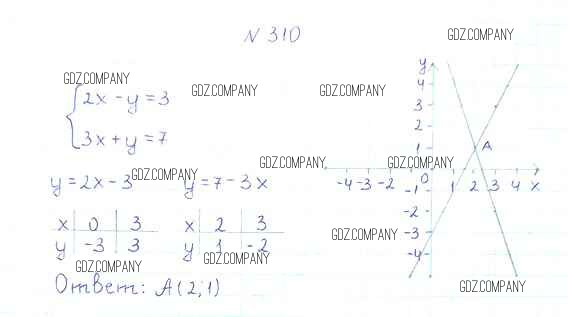 N 310
GDZ.COMPANY
GDZ.COMPANY
GDZ.COMPANY
GDZ.COMPANY
2x - y = 3
3x + y = 7
GDZ.COMPANY
GDZ.COMPANY
GDZ.COMPANY
y = 2x - 3
y = 7 - 3x
x 0 3
y -3 3
x 2 3
y 1 -2
GDZ.COMPANY
GDZ.COMPANY
GDZ.COMPANY
GDZ.COMPANY
Ответ: A(2;1)
y
4
3
2
1
A
-4 -3 -2 0 1 2 3 4 x
-1
-2
-3
-4